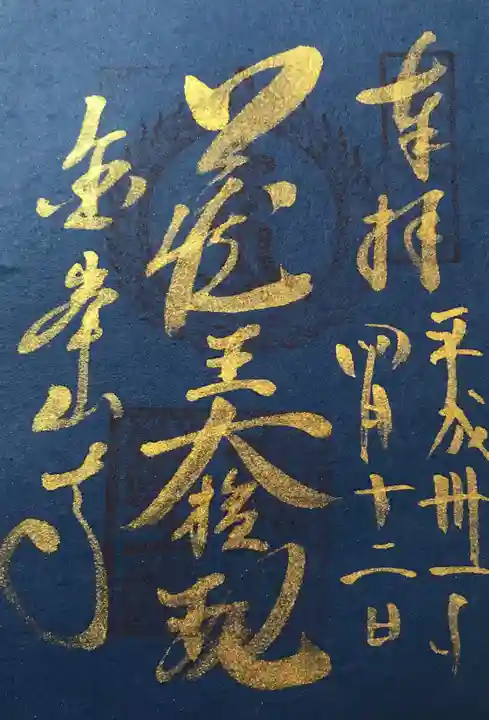 奉拝
平成卅一年
四月十二日
蔵王大権現
金峯山寺